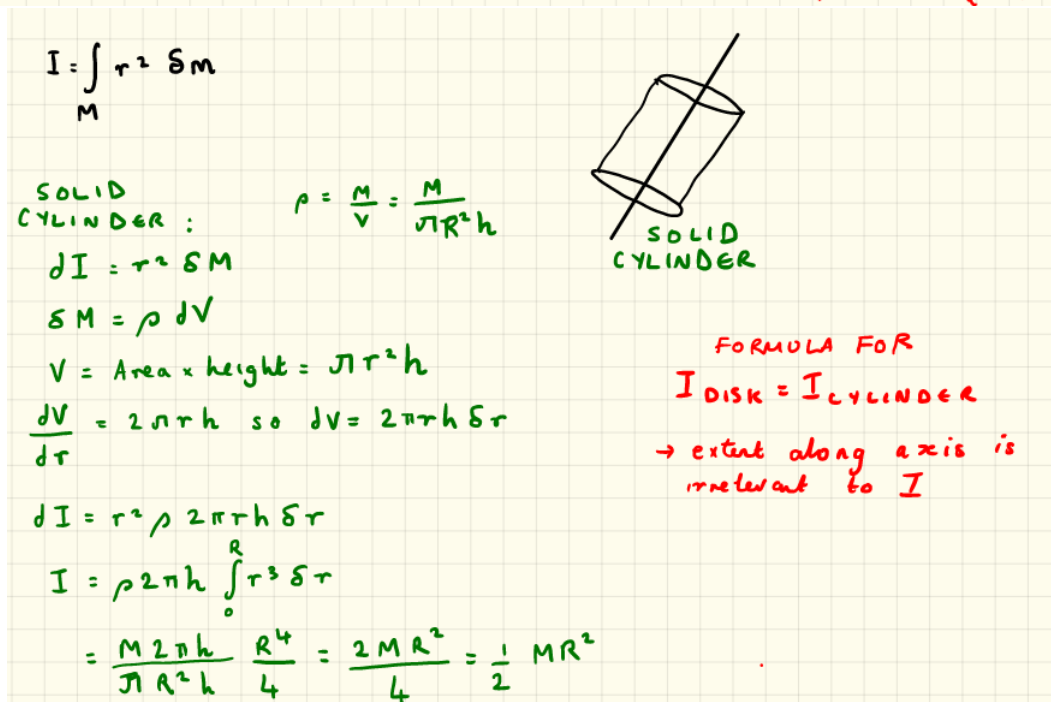 I = ∫ r² δm
M
SOLID
CYLINDER :
ρ = M/V = M/πR²h
dI = r² δM
δM = ρ dV
V = Area × height = πr²h
dV/dr = 2πrh so dV = 2πrh δr
dI = r² ρ 2πrh δr
I = ρ2πh ∫₀ᴿ r³ δr
= M2πh/πR²h R⁴/4 = 2MR²/4 = 1/2 MR²
SOLID
CYLINDER
FORMULA FOR
I DISK = I CYLINDER
→ extent along axis is
irrelevant to I